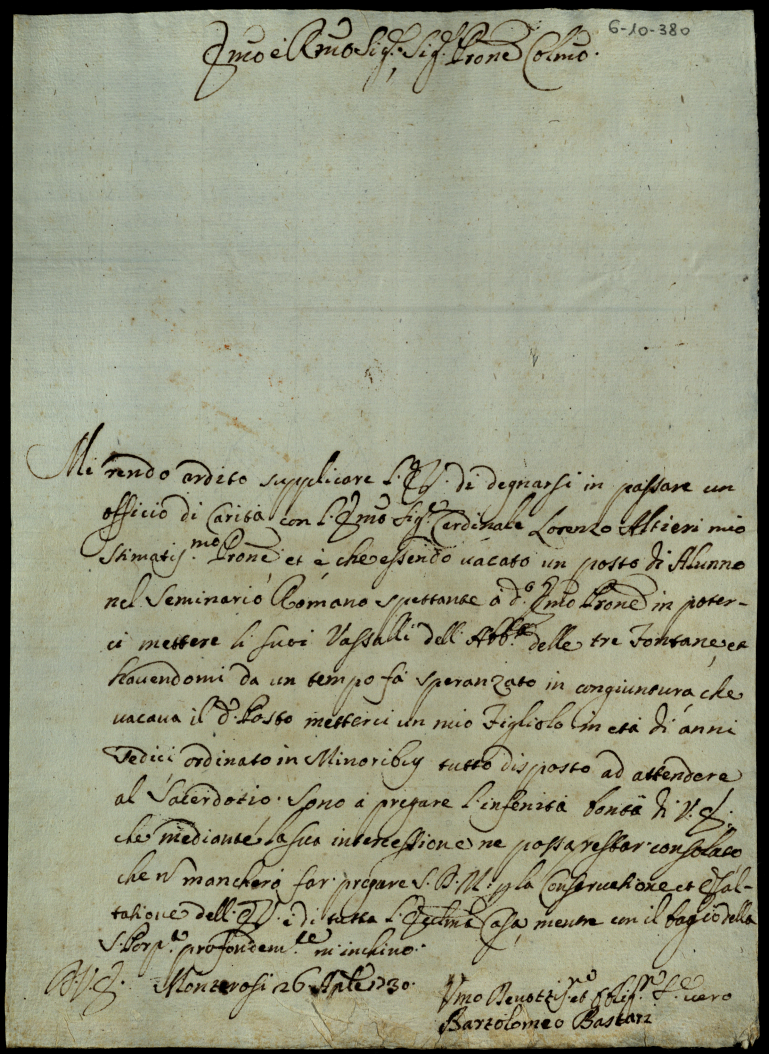 6-10-380
Emo è Rmo Sig.re Sig.re Prone Colmo.
Mi rendo ardito supplicare l'E.V. di degnarsi in passare un
officio di Carità con l'Emo Sig.r Cardinale Lorenzo Altieri mio
Stimatis.mo Prone et è che essendo vacato un posto di Alunno
nel Seminario Romano spettante à d.o Emo Prone in poter-
ci mettere li suoi Vassalli dell'Abb.tia delle tre Fontane, et
havendomi da un tempo fà speranzato in congiuntura, che
vacava il d.o Posto metterci un mio Figliolo in età di anni
Sedici ordinato in Minoribus tutto disposto ad attendere
al Sacerdotio. Sono à pregare l'infenità bontà di V.E.
che mediante la sua intercessione ne possa restar consolato,
che n mancherò far pregare S.D.M. p la Conservatione et Esal-
tatione dell'E.V. è di tutta l'Ecclma Casa, mentre con il bagio della
S. Porp.a profondem.te m'inchino.
D.V.E. Monterosi 26 Aple 1730.
Vmo Devottis.mo et Obligs.mo S.re vero
Bartolomeo Bastari